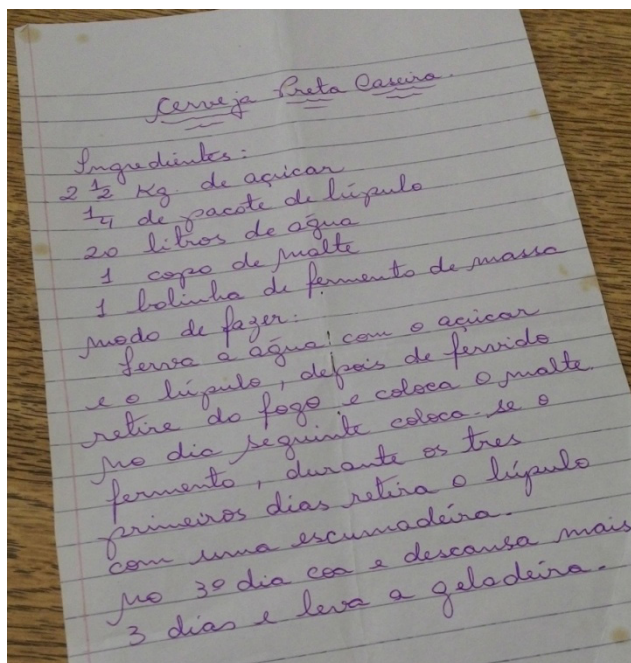 Cerveja Preta Caseira.
Ingredientes:
2 1/2 Kg. de açúcar
1/4 de pacote de lúpulo
20 litros de água
1 copo de malte
1 bolinha de fermento de massa
modo de fazer:
Ferva a água com o açúcar
e o lúpulo, depois de fervido
retire do fogo e coloca o malte.
no dia seguinte coloca-se o
fermento, durante os tres
primeiros dias retira o lúpulo
com uma escumadeira.
no 3º dia coa e descansa mais
3 dias e leva a geladeira.